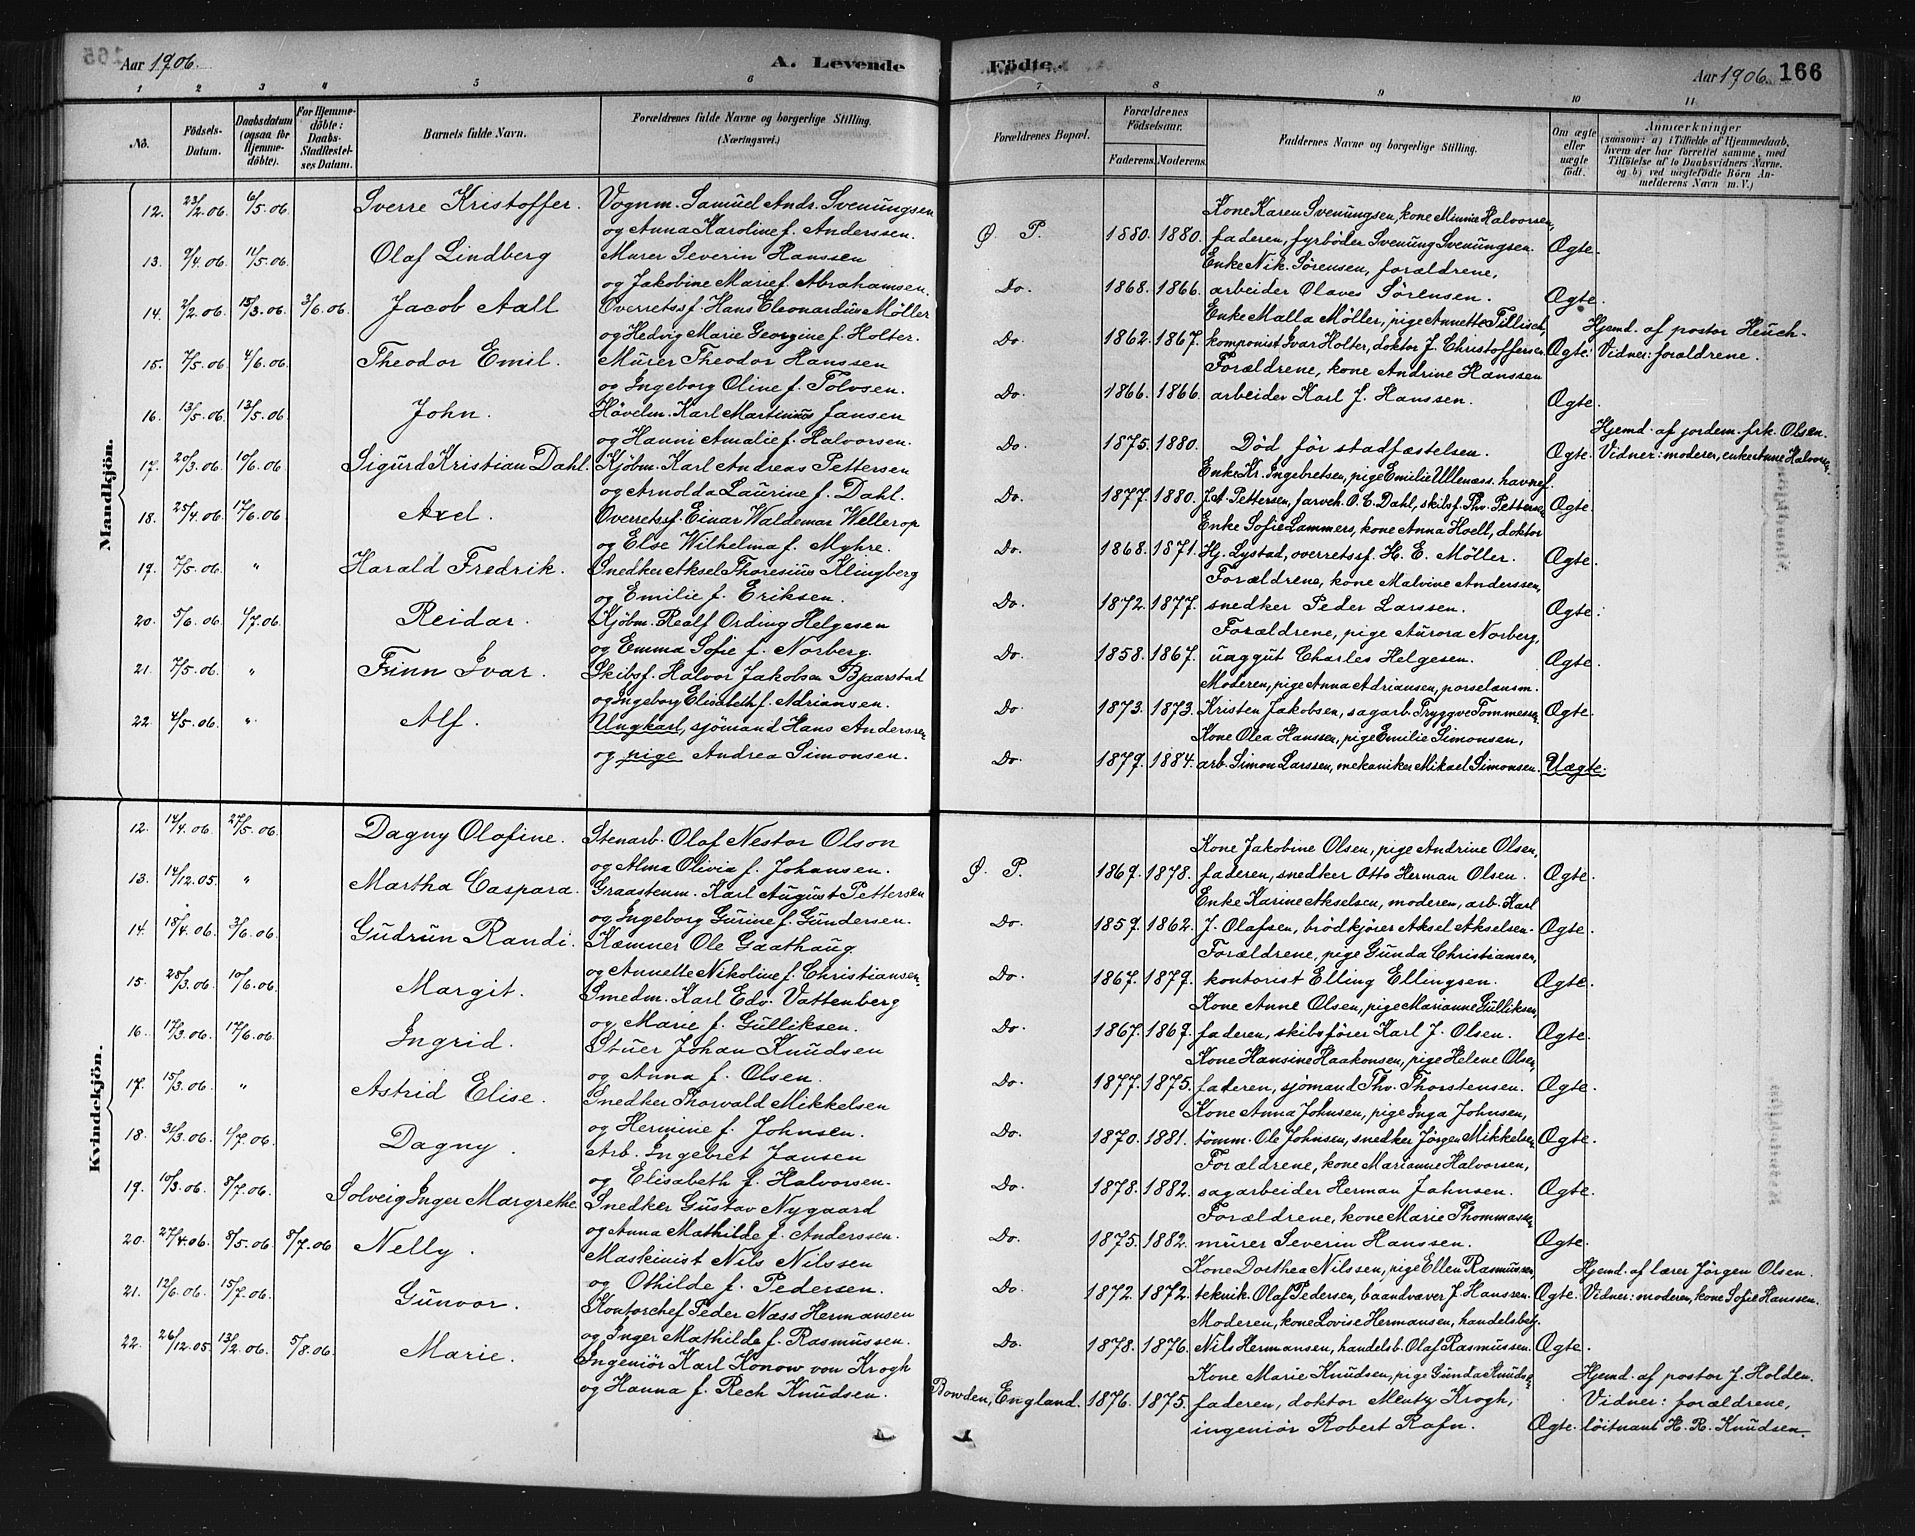 Aar 1906. A. Levende Födte. Aar 1906. 166
1 2 3 4 5 6 7 8 9 10 11
No. Födsels-Datum. Daabsdatum (ogsaa for Hjemmedöbte). For Hjemmedöbte: Daabs-Stadfæstelses Datum. Barnets fulde Navn. Forældrenes fulde Navne og borgerlige Stilling. (Næringsvei.) Forældrenes Bopæl. Forældrenes Födselsaar. Faderens. Moderens. Faddernes Navne og borgerlige Stilling. Om ægte eller uægte födt. Anmærkninger (saasom: a) i Tilfælde af Hjemmedaab, hvem der har forrettet samme, med Tilföielse af to Daabsvidners Navne, og b) ved uægtefödte Börn Anmelderens Navn m. V.)
Mandkjön.
12. 23/2.06. 6/5.06. Sverre Kristoffer. Vognm. Samuel Ands. Svenungsen
og Anna Karoline f. Anderssen. Ø. P. 1880. 1880. Kone Karen Svenungsen, kone Minnie Halvorsen,
faderen, fyrböder Svenung Svenungsen. Ægte.
13. 9/4.06. 11/5.06. Olaf Lindberg Murer Severin Hanssen
og Jakobine Marie f. Abrahamsen. Do. 1868. 1866. Enke Nik. Sörensen, forældrene,
arbeider Olaves Sörensen. Ægte.
14. 2/2.06. 15/3.06. 3/6.06. Jacob Aall Overretssf. Hans Eleonardus Møller
og Hedvig Marie Georgine f. Holter. Do. 1862. 1867. Enke Malla Møller, pige Annette Tillisch,
komponist Ivar Holter, doktor J. Christoffersen. Ægte. Hjemd. af pastor Heuch.
Vidner: forældrene.
15. 7/5.06. 4/6.06. Theodor Emil. Murer Theodor Hanssen
og Ingeborg Oline f. Tolvsen. Do. 1866. 1866. Forældrene, kone Andrine Hanssen
arbeider Karl J. Hanssen. Ægte.
16. 13/5.06. 13/5.06. John. Hövelm. Karl Martinius Jansen
og Hanni Amalie f. Halvorsen. Do. 1875. 1880. Död för stadfæstelsen. Ægte. Hjemd. af jordem. frk. Olsen.
Vidner: moderen, enke Anne Halvorsen.
17. 20/3.06. 10/6.06. Sigurd Kristian Dahl. Kjöbm. Karl Andreas Pettersen
og Arnolda Laurine f. Dahl. Do. 1877. 1880. Enke Kr. Ingebretsen, pige Emilie Ullenæss, havnef.
J. A. Pettersen, farveh. O. C. Dahl, skibsf. Thv. Pettersen. Ægte.
18. 25/4.06. 17/6.06. Axel. Overretssf. Einar Waldemar Wellerop
og Else Wilhelma f. Myhre. Do. 1868. 1871. Enke Sofie Lammers, kone Anna Hoell, doktor
Hj. Lystad, overretssf. H. E. Møller. Ægte.
19. 7/5.06. " Harald Fredrik. Snedker Aksel Thoresius Klingberg
og Emilie f. Eriksen. Do. 1872. 1877. Forældrene, kone Malvine Anderssen,
snedker Peder Larssen. Ægte.
20. 5/6.06. 4/7.06. Reidar. Kjöbm. Realf Ording Helgesen
og Emma Sofie f. Norberg. Do. 1858. 1867. Forældrene, pige Aurora Norberg,
uaggut Charles Helgesen. Ægte.
21. 7/5.06. " Finn Ivar. Skibsf. Halvor Jakobsen Bjaarstad
og Ingeborg Elisabeth f. Adriansen. Do. 1873. 1873. Moderen, pige Anna Adriansen, porselænsm.
Kristen Jakobsen, sagarb. Tryggve Tommesen. Ægte.
22. 4/5.06. " Alf. Ungkarl, sjömand Hans Anderssen
og pige Andrea Simonsen. Do. 1879. 1884. Kone Olea Hanssen, pige Emilie Simonsen,
arb. Simon Larssen, mekaniker Mikael Simonsen. Uægte.
Kvindekjön.
12. 14/4.06. 27/5.06. Dagny Olofine. Stenarb. Olaf Nestor Olson
og Alma Olivia f. Johansen. Ø. P. 1869. 1878. Kone Jakobine Olsen, pige Andrine Olsen,
faderen, snedker Otto Herman Olsen. Ægte.
13. 14/12.05. " Martha Caspara. Graastenm. Karl August Pettersen
og Ingeborg Gurine f. Gundersen. Do. 1859. 1862. Enke Karine Akselsen, moderen, arb. Karl
J. Olafsen, brödkjörer Aksel Akselsen. Ægte.
14. 18/4.06. 3/6.06. Gudrun Randi. Kæmner Ole Gaathaug
og Annette Nikoline f. Christiansen. Do. 1867. 1879. Forældrene, pige Gunda Christiansen,
kontorist Elling Ellingsen. Ægte.
15. 25/3.06. 10/6.06. Margit. Smedm. Karl Edv. Vattenberg
og Marie f. Gulliksen. Do. 1867. 1869. Kone Anne Olsen, pige Marianne Gulliksen,
faderen, skibsförer Karl J. Olsen. Ægte.
16. 17/3.06. 17/6.06. Ingrid. Stuer Johan Knudsen
og Anna f. Olsen. Do. 1877. 1875. Kone Hansine Haakonsen, pige Helene Olsen,
faderen, sjömand Thv. Thorstensen. Ægte.
17. 15/3.06. " Astrid Elise. Snedker Thorvald Mikkelsen
og Hermine f. Johnsen. Do. 1870. 1881. Kone Anna Johnsen, pige Inga Johnsen,
tömm. Ole Johnsen, snedker Jörgen Mikkelsen. Ægte.
18. 31/3.06. 4/7.06. Dagny. Arb. Ingebret Jansen
og Elisabeth f. Halvorsen. Do. 1878. 1882. Forældrene, kone Marianne Halvorsen,
sagarbeider Herman Jahnsen. Ægte.
19. 10/3.06. 8/7.06. Solveig Inger Margrethe. Snedker Gustav Nygaard
og Anna Mathilde f. Anderssen. Do. 1875. 1882. Forældrene, kone Marie Thommasen,
murer Severin Hanssen. Ægte.
20. 27/4.06. 8/5.06. 8/7.06 Nelly. Maskinist Nils Nilssen
og Othilde f. Pedersen. Do. 1872. 1872. Kone Dorthea Nilssen, pige Ellen Rasmussen,
teknik. Olaf Pedersen, baandvæver J. Hanssen. Ægte. Hjemd. af lærer Jörgen Olsen.
Vidner: moderen, kone Sofie Hanssen.
21. 12/6.06. 15/7.06. Gunvor. Kontorchef Peder Næss Hermansen
og Inger Mathilde f. Rasmussen. Do. 1878. 1876. Moderen, kone Lovise Hermansen, handelsbej.
Nils Hermansen, handelsb. Olaf Rasmussen. Ægte.
22. 26/12.05. 13/2.06. 5/8.06. Marie. Ingeniör Karl Konow von Krogh
og Hanna f. Rech Knudsen. Bowden, England. 1876. 1875. Kone Marie Knudsen, pige Gunda Knudsen
faderen, doktor Mentz Krogh,
ingeniör Robert Rafn. Ægte. Hjemd. af pastor J. Holden.
Vidner: forældrene,
löitnant H. R. Knudsen.